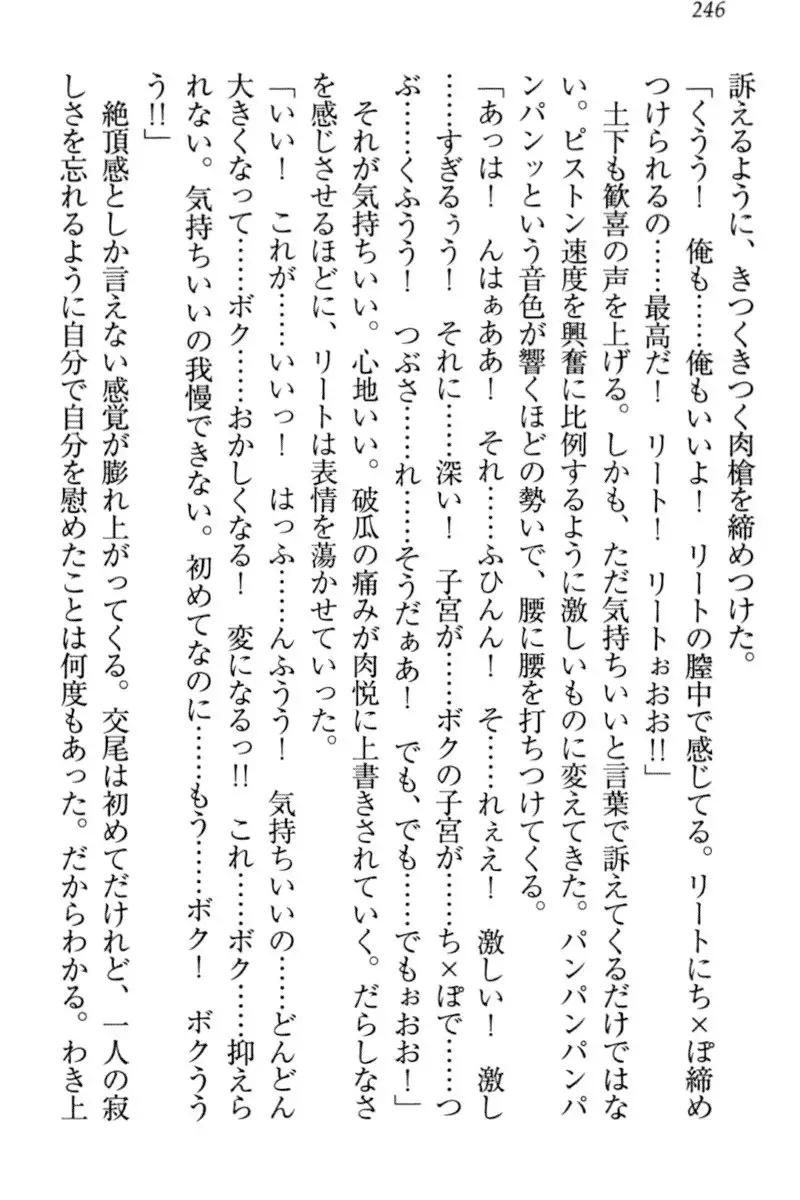 246
訴えるように、きつくきつく肉槍を締めつけた。
「くうう！　俺も……俺もいいよ！　リートの膣中で感じてる。リートにち×ぽ締め
つけられるの……最高だ！　リート！　リートぉおお!!」
土下も歓喜の声を上げる。しかも、ただ気持ちいいと言葉で訴えてくるだけではな
い。ピストン速度を興奮に比例するように激しいものに変えてきた。パンパンパンパ
ンパンッという音色が響くほどの勢いで、腰に腰を打ちつけてくる。
「あっは！　んはぁああ！　それ……ふひんん！　そ……れぇえ！　激しい！　激し
……すぎるぅう！　それに……深い！　子宮が……ボクの子宮が……ち×ぽで……つ
ぶ……くふうう！　つぶさ……れ……そうだぁあ！　でも、でも……でもぉおお！」
それが気持ちいい。心地いい。破瓜の痛みが肉悦に上書きされていく。だらしなさ
を感じさせるほどに、リートは表情を蕩かせていった。
「いい！　これが……いいっ！　はっふ……んふうう！　気持ちいいの……どんどん
大きくなって……ボク……おかしくなる！　変になるっ!!　これ……ボク……抑えら
れない。気持ちいいの我慢できない。初めてなのに……もう……ボク！　ボクうう
う!!」
絶頂感としか言えない感覚が膨れ上がってくる。交尾は初めてだけれど、一人の寂
しさを忘れるように自分で自分を慰めたことは何度もあった。だからわかる。わき上